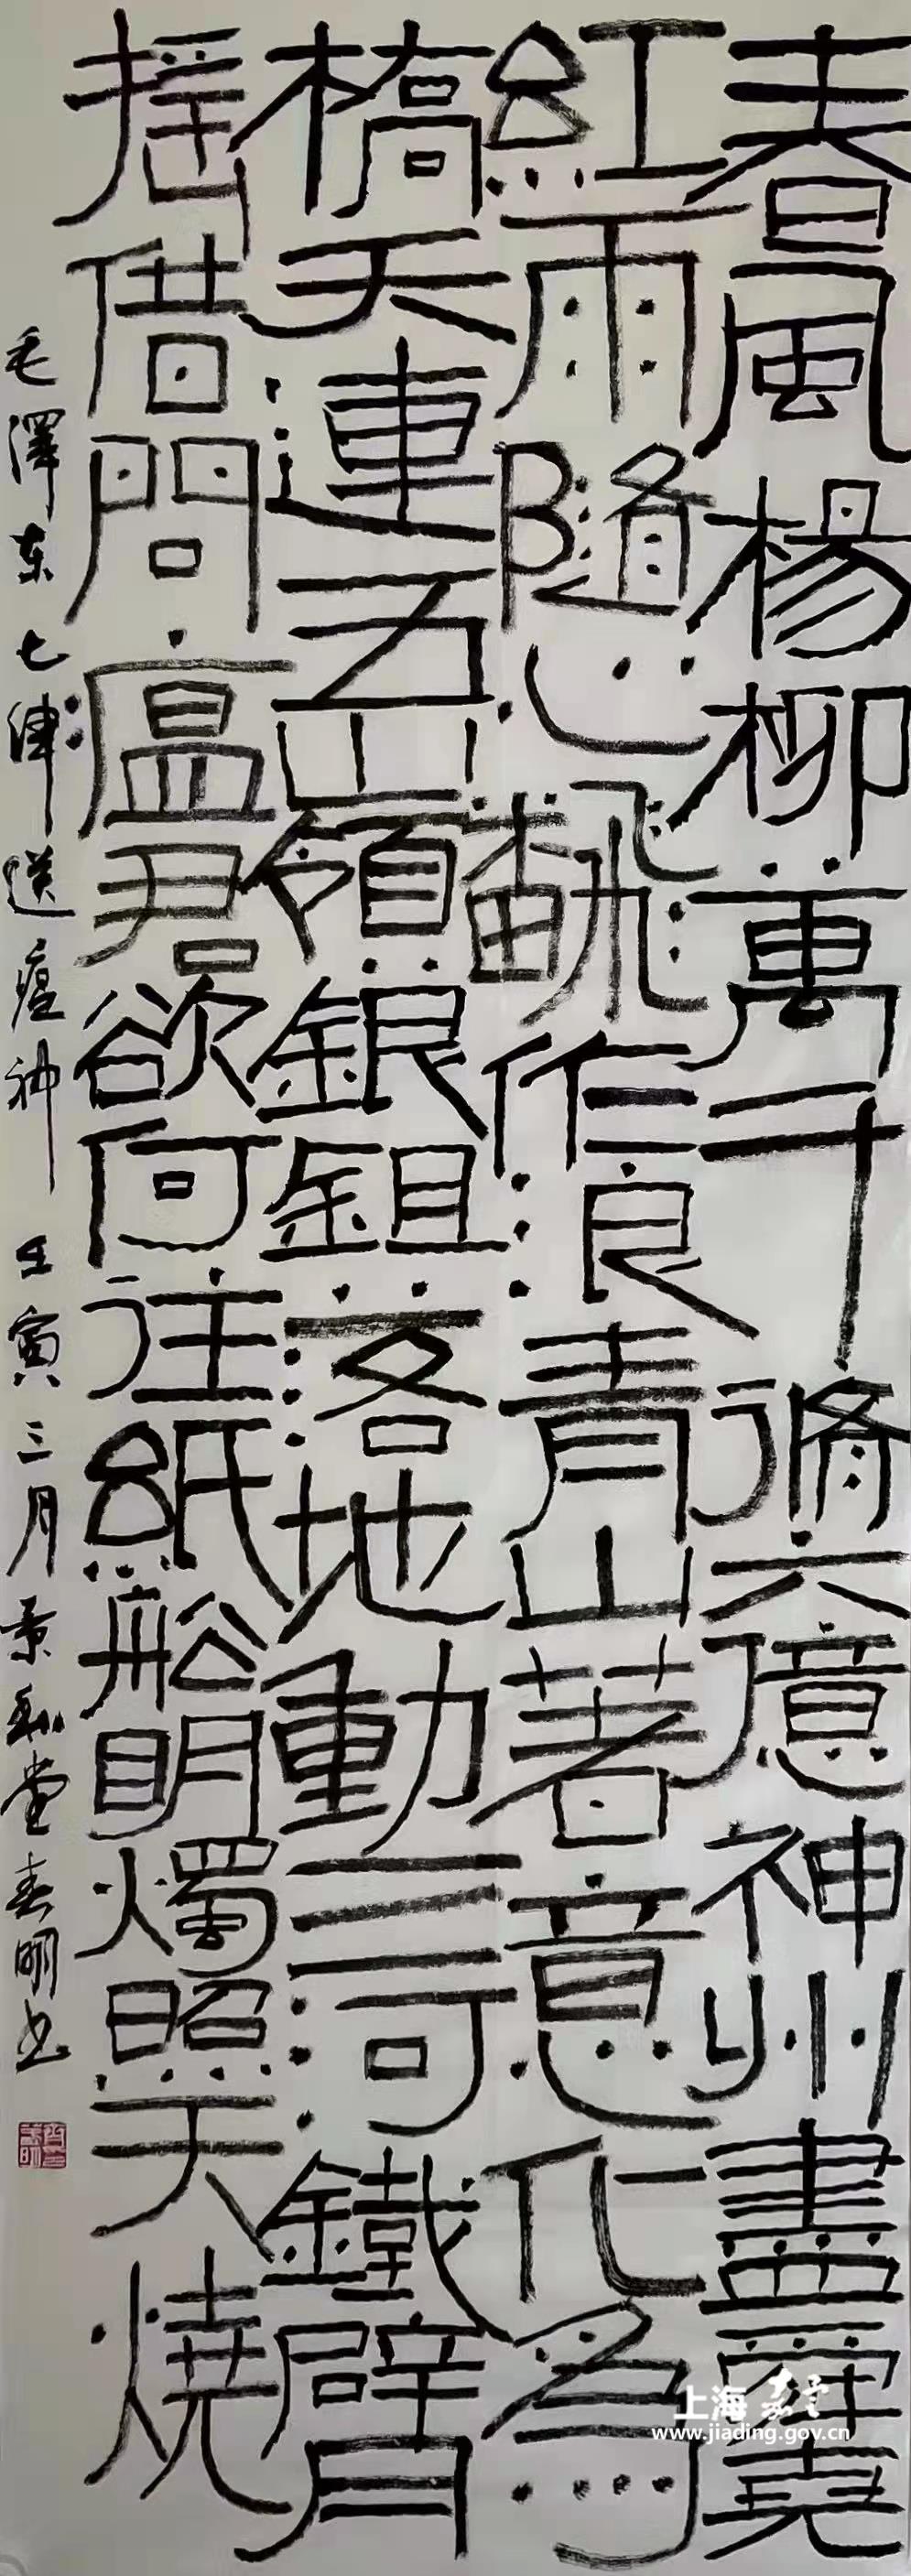 春風楊柳萬千條六億神州盡舜堯
紅雨隨心飜作浪青山著意化為
橋天連五嶺銀鉏落地動三河鐵臂
搖借問瘟君欲何往紙船明燭照天燒
毛澤东七律送瘟神 壬寅三月景堂春明书
上海嘉定
www.jiading.gov.cn